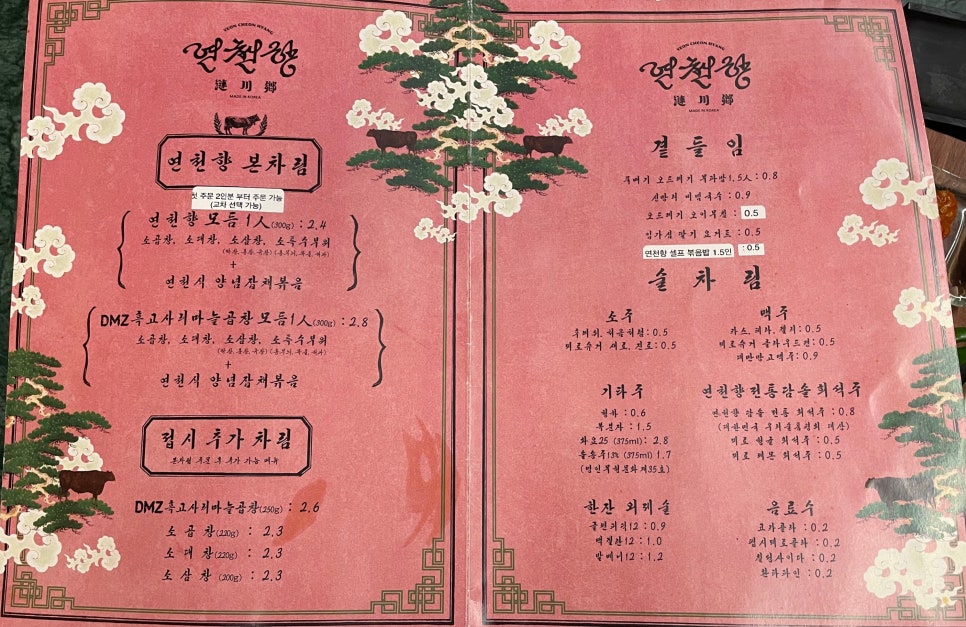 YEON CHEON HYANG
연천향
漣川鄕
MADE IN KOREA
연천향 본차림
첫 주문 2인분 부터 주문 가능
(교차 선택 가능)
연천향 모듬 1人(300g) : 2.4
소곱창, 소대창, 소삼창, 소특수부위
+
연천식 양념잡채볶음
DMZ흑고사리마늘곱창 모듬 1人(300g) : 2.8
소곱창, 소대창, 소삼창, 소특수부위
+
연천식 양념잡채볶음
접시 추가 차림
본차림 주문 후 추가 가능 메뉴
DMZ흑고사리마늘곱창(250g) : 2.6
소곱창(220g) : 2.3
소대창(220g) : 2.3
소삼창(200g) : 2.3
YEON CHEON HYANG
연천향
漣川鄕
MADE IN KOREA
곁들임
1.5人 : 0.8
비빔국수 : 0.9
오드레기 오이무침 : 0.5
딸기 요거트 : 0.5
연천향 셀프 볶음밥 1.5인 : 0.5
술차림
소주
진로 : 0.5
맥주
카스, 테라, 켈리 : 0.5
0.5
대만망고맥주 : 0.9
기타주
0.6
복분자 : 1.5
화요25 (375ml) : 2.8
13% (375ml) 1.7
연천향 전통 감술 희석주
연천향 감술 전통 희석주 : 0.8
희석주 : 0.5
레몬 희석주 : 0.5
한잔 외레술
글렌피딕12 : 0.9
맥켈란12 : 1.0
발베니12 : 1.2
음료수
코카콜라 : 0.2
펩시제로콜라 : 0.2
칠성사이다 : 0.2
환타파인 : 0.2